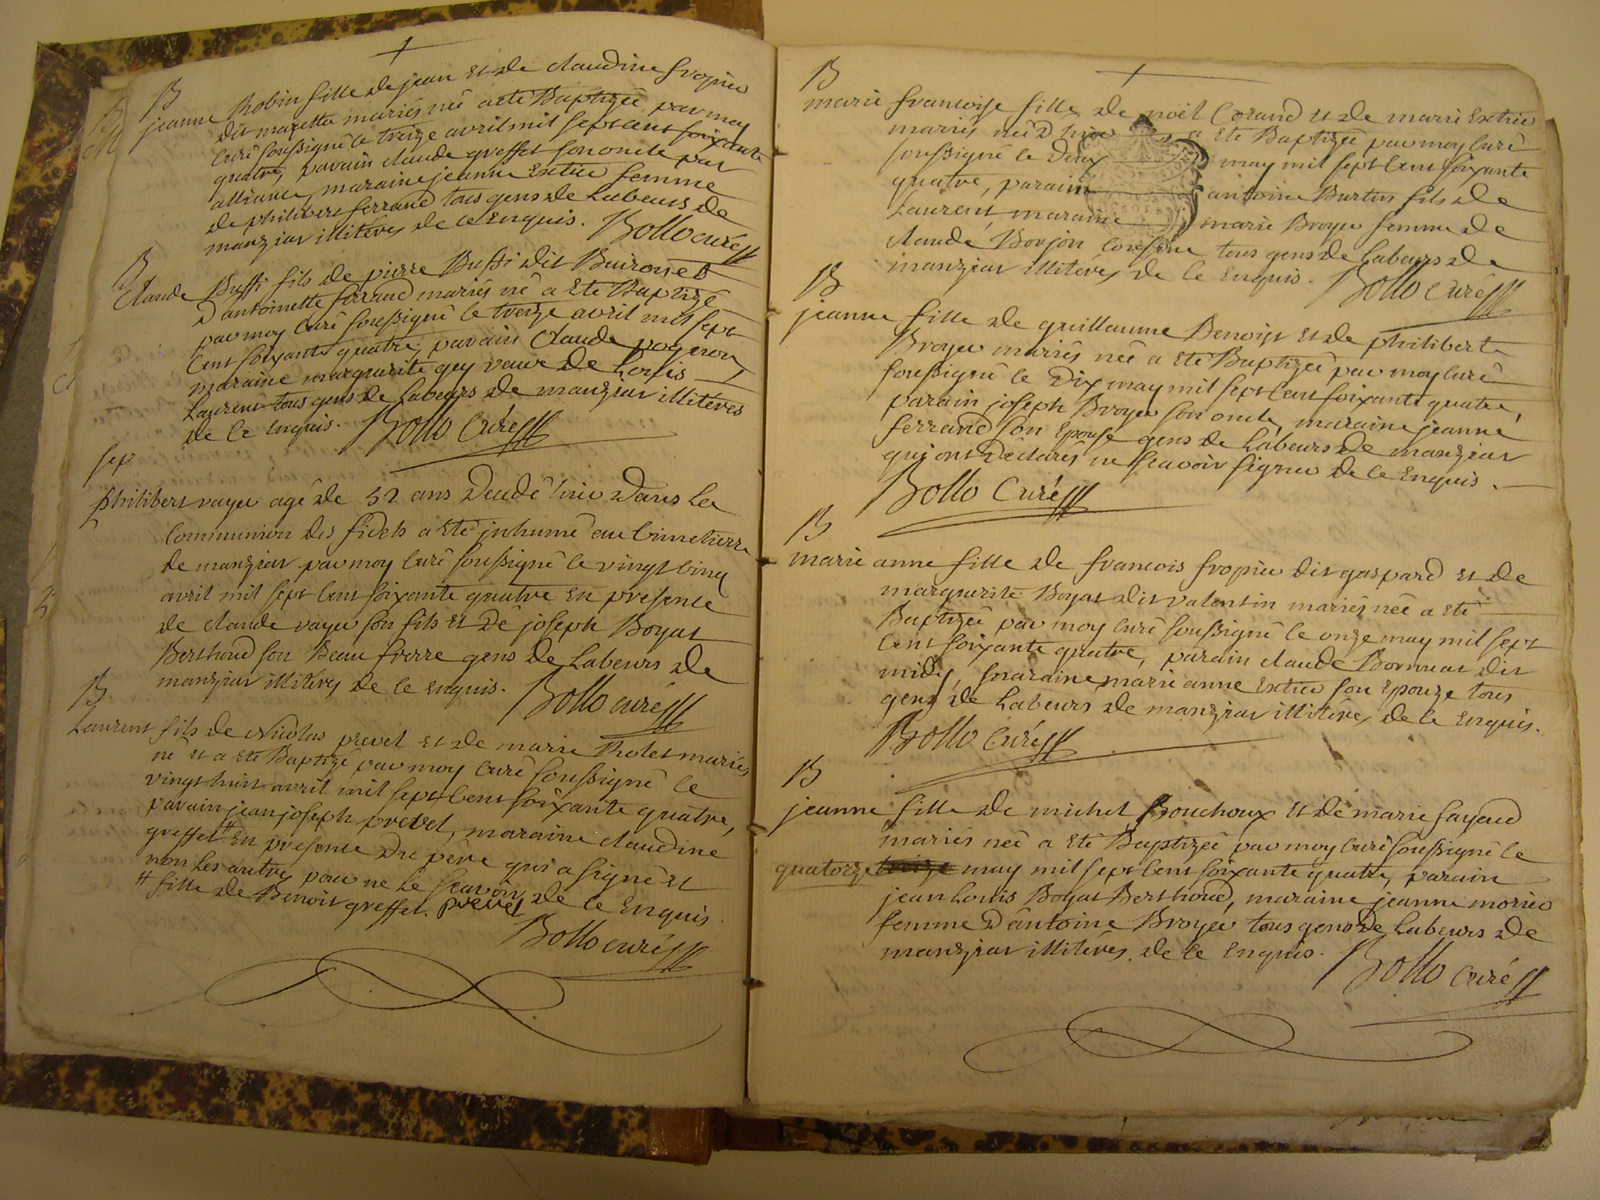 B
jeanne Robin fille de jean et de claudine fropier
dit maretta mariés née a eté Baptizée par moy
Curé soussigné le treize avril mil sept cent soixante
quatre, parain claude greffet son oncle par
alliance, maraine jeanne Extier femme
de philibert ferrand tous gens de Labeurs de
manziat illiterés de ce Enquis. Bollo curé
B
Claude Buffi fils de pierre Buffi dit Buironet
d'antoinette ferrand mariés né a eté Baptizé
par moy Curé soussigné le treize avril mil sept
Cent soixante quatre, parain Claude
maraine marguerite de Louis
Laurent tous gens de Labeurs de manziat illiterés
de ce Enquis. Bollo Curé
sep
philibert vayer agé de 52 ans dans la
Communion des fidels a eté inhumé au Cimetierre
de manziat par moy Curé soussigné le vingt Cinq
avril mil sept Cent soixante quatre en presence
de claude vayer son fils et de joseph Boyat
Berthoud son Beau frerre gens de Labeurs de
manziat illiterés de ce Enquis. Bollo curé
B
Laurent fils de Nicolas prevel et de marie mariés
né et a eté Baptizé par moy curé soussigné le
vingt huit avril mil sept Cent soixante quatre,
parain jean joseph prevel, maraine claudine
greffet # En presence du père qui a signé et
non Les autres pour ne le sçavoir de ce Enquis.
# fille de Benoit greffet. prevel
Bollo curé
B
marie francoise fille de noël Corand et de marie Extier
mariés née a eté Baptizée par moy Curé
soussigné le Deux may mil sept Cent soixante
quatre, parain antoine Burtin fils de
Laurent maraine marie Broyer femme de
claude Bonjon tous gens de Labeurs de
manziat illiterés de ce Enquis. Bollo Curé
B
jeanne fille de guillaume Benoist et de philiberte
Broyer mariés née a eté Baptizée par moy Curé
soussigné le Dix may mil sept Cent soixante quatre,
parain joseph Broyer son oncle, maraine jeanne
ferrand son Epouse gens de Labeurs de manziat
qui ont Declarés ne sçavoir signer de ce Enquis.
Bollo Curé
B
marie anne fille de francois fropier dit gaspard et de
marguerite Boyat dit valentin mariés née a eté
Baptizée par moy Curé soussigné le onze may mil sept
Cent soixante quatre, parain claude Bornuat dit
midy, maraine marie anne Extier son Epouze tous
gens de Labeurs de manziat illiterés de ce Enquis.
Bollo Curé
B
jeanne fille de michel Bouchoux et de marie fayard
mariés née a eté Baptizée par moy Curé soussigné le
quatorze may mil sept Cent soixante quatre, parain
jean Louis Boyat Berthoud, maraine jeanne morier
femme d'antoine Broyer tous gens de Labeurs de
manziat illiterés de ce Enquis.
Bollo Curé